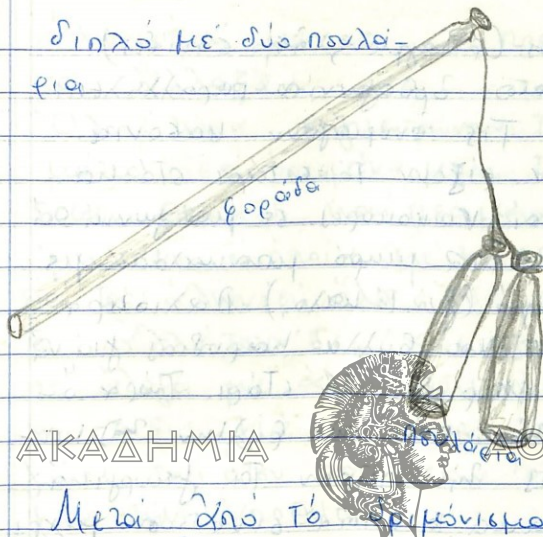 διπλό μέ δύο πουλά-
ρια
φοράδα
πουλάρια
ΑΚΑΔΗΜΙΑ ΑΘ
Μετά ἀπό τό δριμόνισμα